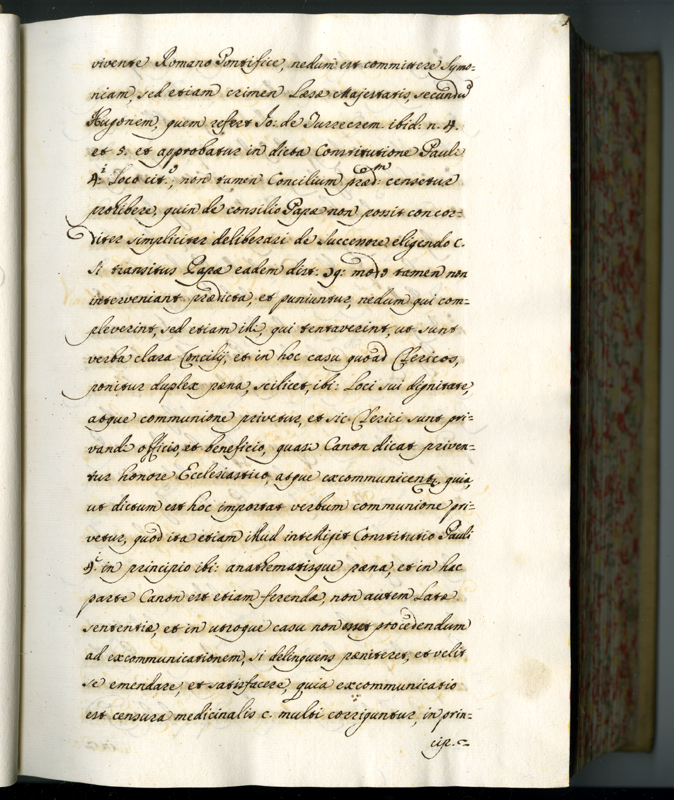 vivente Romano Pontifice, nedum est committere Symo=
niam, sed etiam crimen Læsæ Majestatis, secundũ
Hugonem, quem refert Jo: de Turrecrem. ibid: n. 4.
et 5. et approbatur in dicta Constitutione Pauli
4.i Loco cit.o, non tamen Concilium præd.m censetur
prohibere, quin de consilio Papæ non possit concor=
diter simpliciter deliberari de Successore eligendo c.
si transitus Papæ eadem dist. 79: modo tamen non
interveniant prædicta, et puniuntur, nedum qui com=
pleverint, sed etiam illi, qui tentaverint, ut sunt
verba clara Concilij, et in hoc casu quoad Clericos,
ponitur duplex pæna, scilicet, ibi: Loci sui dignitate,
atque communione privetur, et sic Clerici sunt pri=
vandi officio, et beneficio, quasi Canon dicat priven=
tur honore Ecclesiastico, atque excommunicentur, quia,
ut dictum est hoc importat verbum communione pri=
vetur, quod ita etiam illud intelligit Constitutio Pauli
4.i in principio ibi: anathematisque pæna, et in hac
parte Canon est etiam ferendæ, non autem Latæ
sententiæ, et in utroque casu non esset procedendum
ad excommunicationem, si delinquens pæniteret, et velit
se emendare, et satisfacere, quia excommunicatio
est censura medicinalis c. multi corriguntur, in prin=
cip.